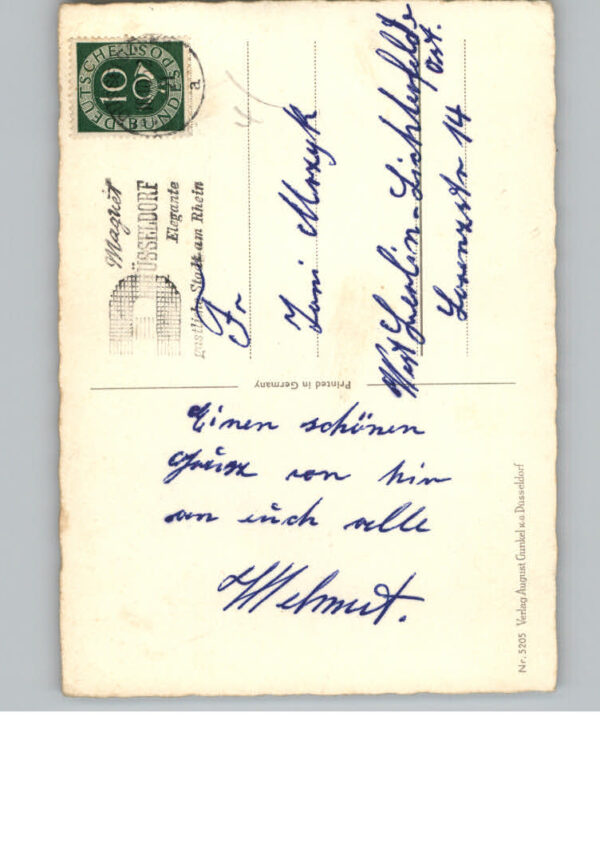 DEUTSCHE BUNDESPOST
10
a
Magnet
DÜSSELDORF
Elegante
gastliche Stadt am Rhein
Fr
Toni Mozyk
West Berlin-Lichterfelde
Ost.
Lorenzstr 14
Printed in Germany
Einen schönen
Gruss von hir
an euch alle
Helmut.
Nr. 5205 Verlag August Gunkel K.G. Düsseldorf